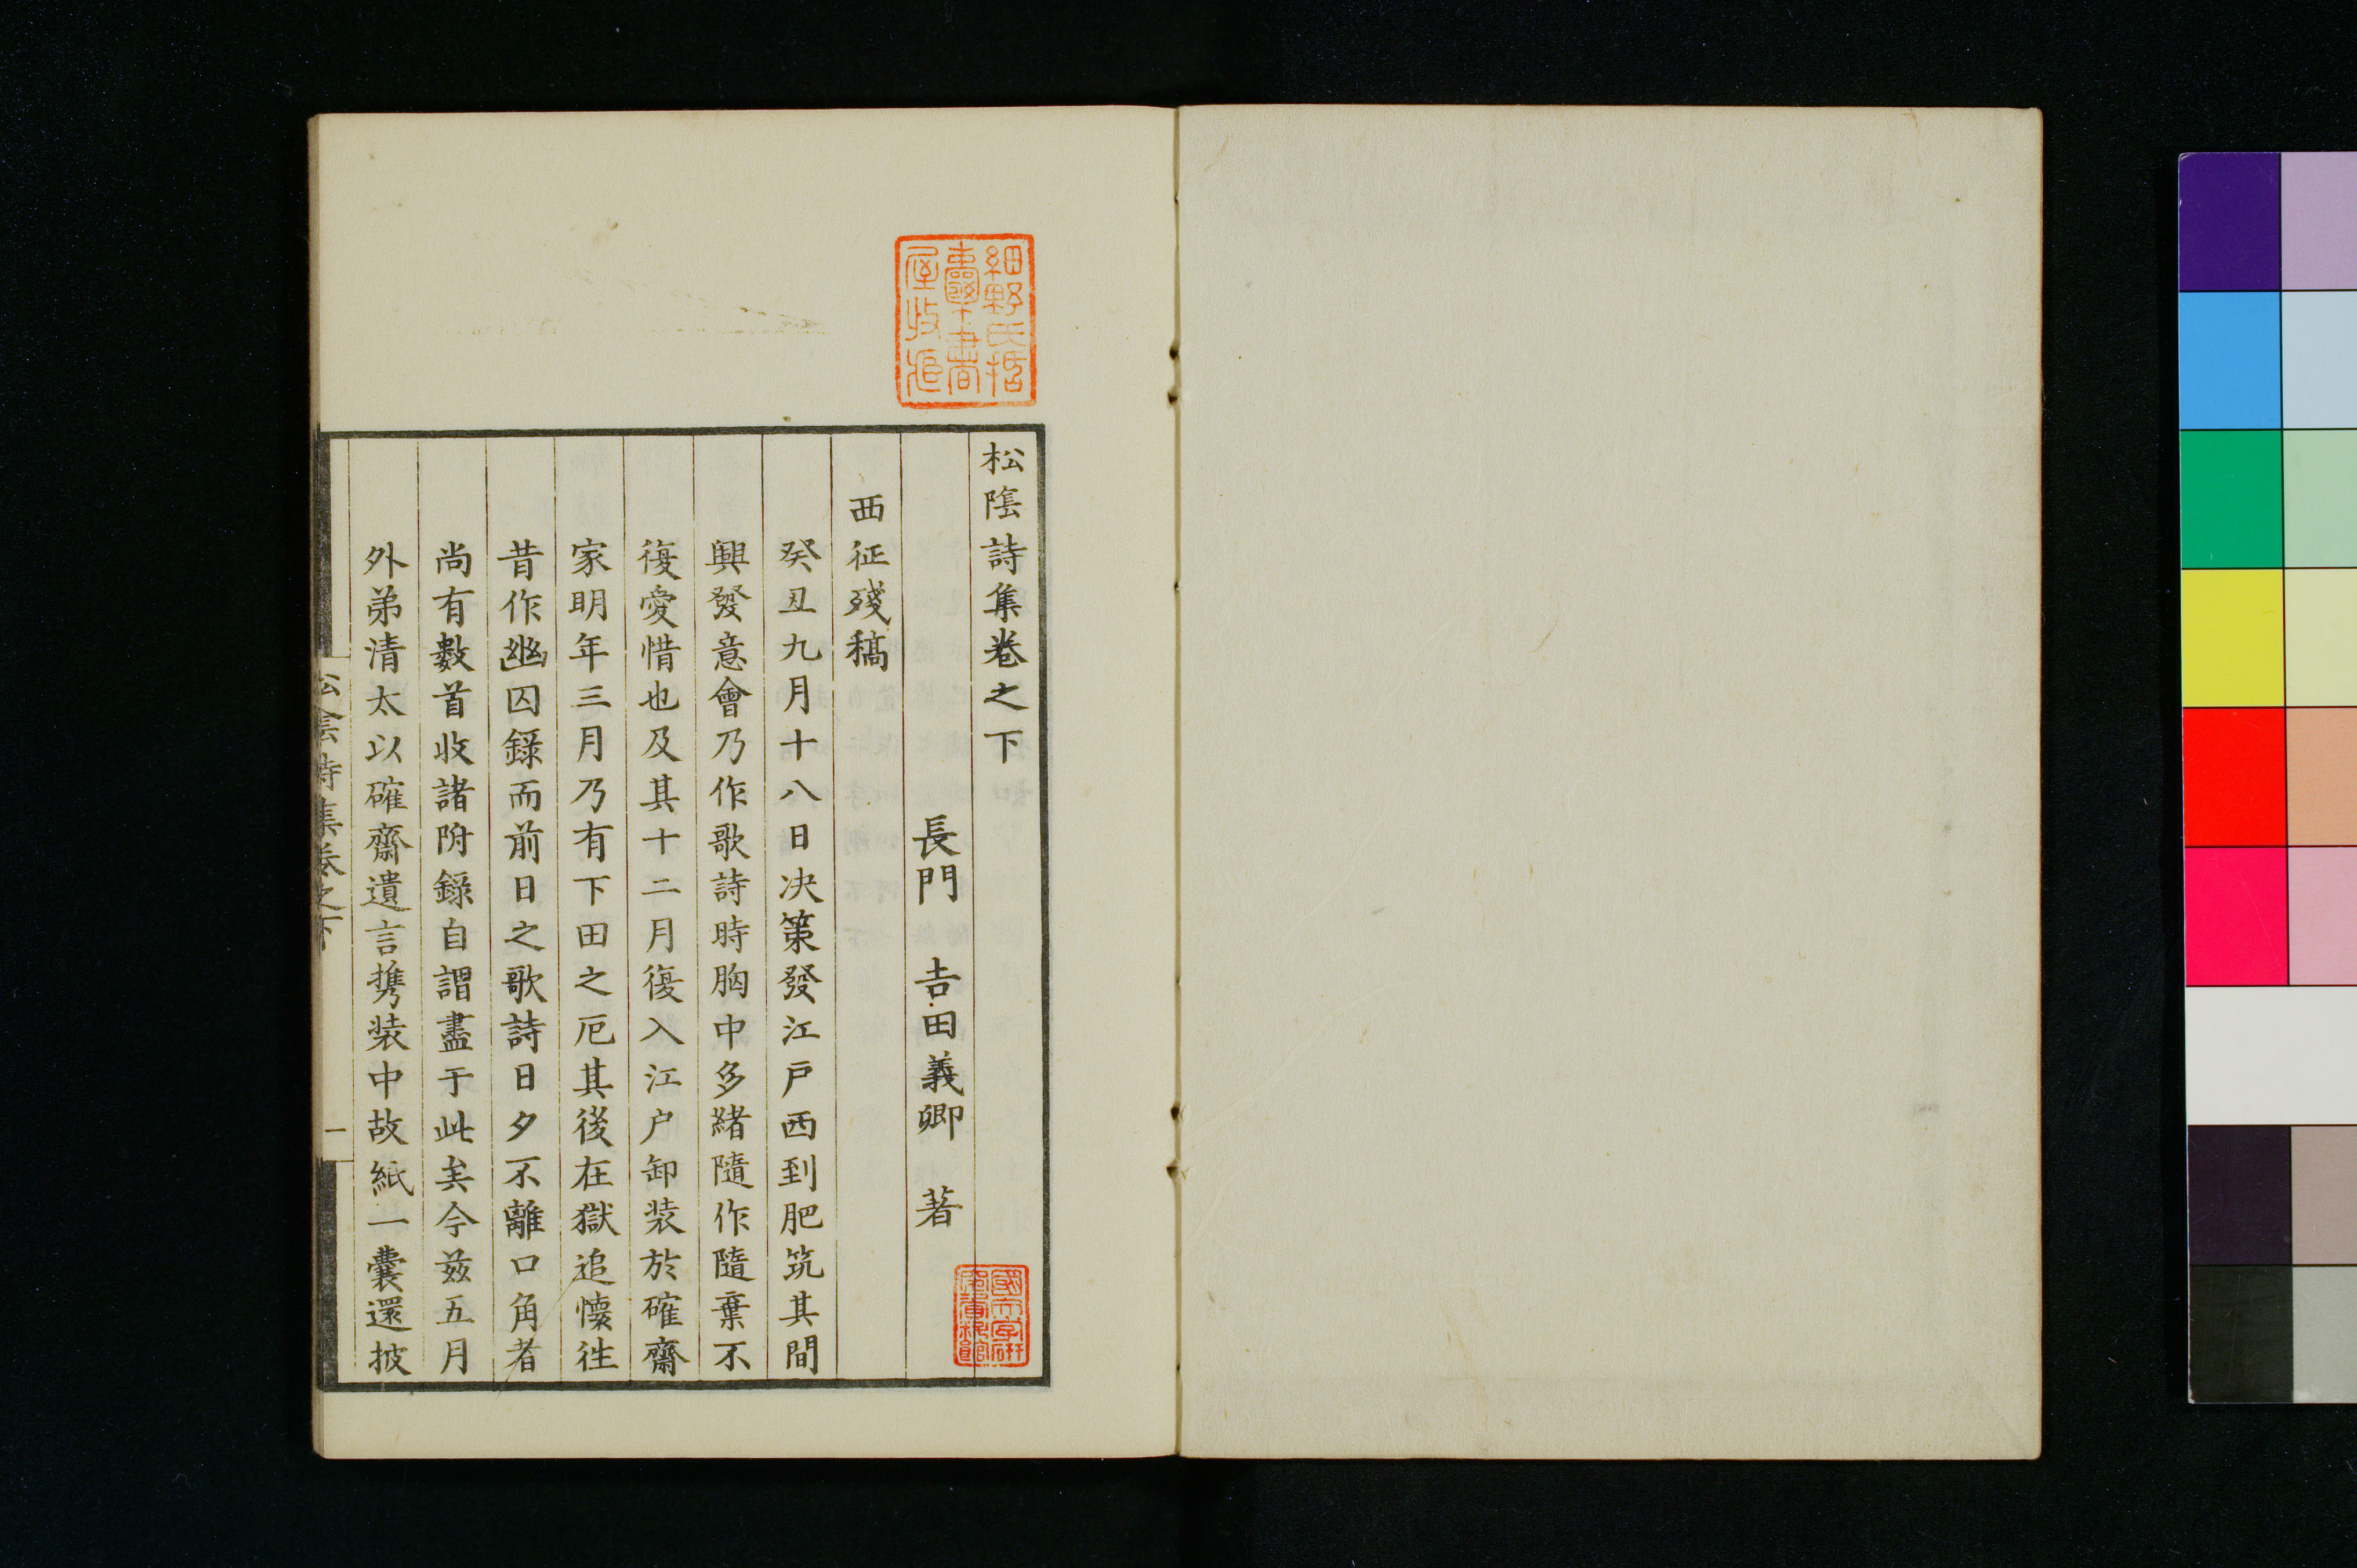 松陰詩集卷之下
長門 吉田義卿 著
西征殘稿
癸丑九月十八日決策發江戶西到肥筑其間
興發意會乃作歌詩時胸中多緒隨作隨棄不
復愛惜也及其十二月復入江戶卸装於確齋
家明年三月乃有下田之厄其後在獄追懷徃
昔作幽囚錄而前日之歌詩日夕不離口角者
尚有數首收諸附錄自謂盡于此矣今茲五月
外弟清太以確齋遺言携装中故紙一囊還披
松陰詩集卷之下
一